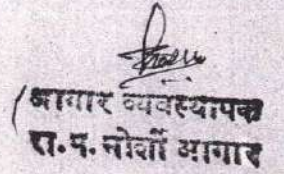 (आगार व्यवस्थापक
रा.प. मोर्शी आगार